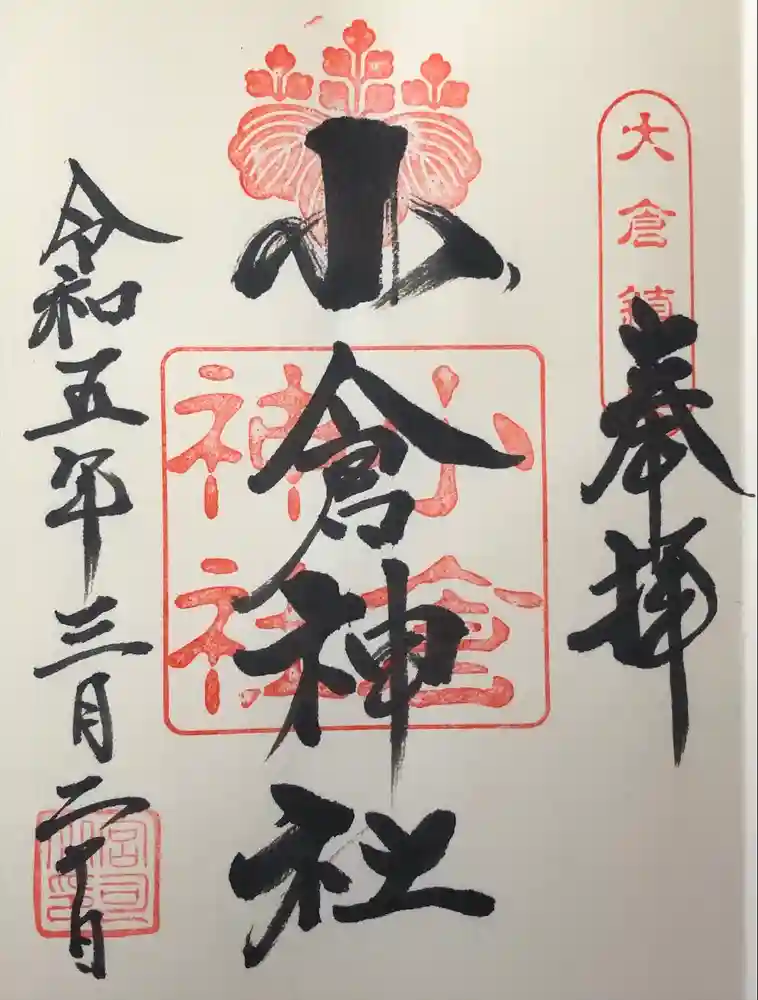 大倉鎮
奉拝
小倉神社
小倉
神社
令和五年三月二十日
宮司
之印